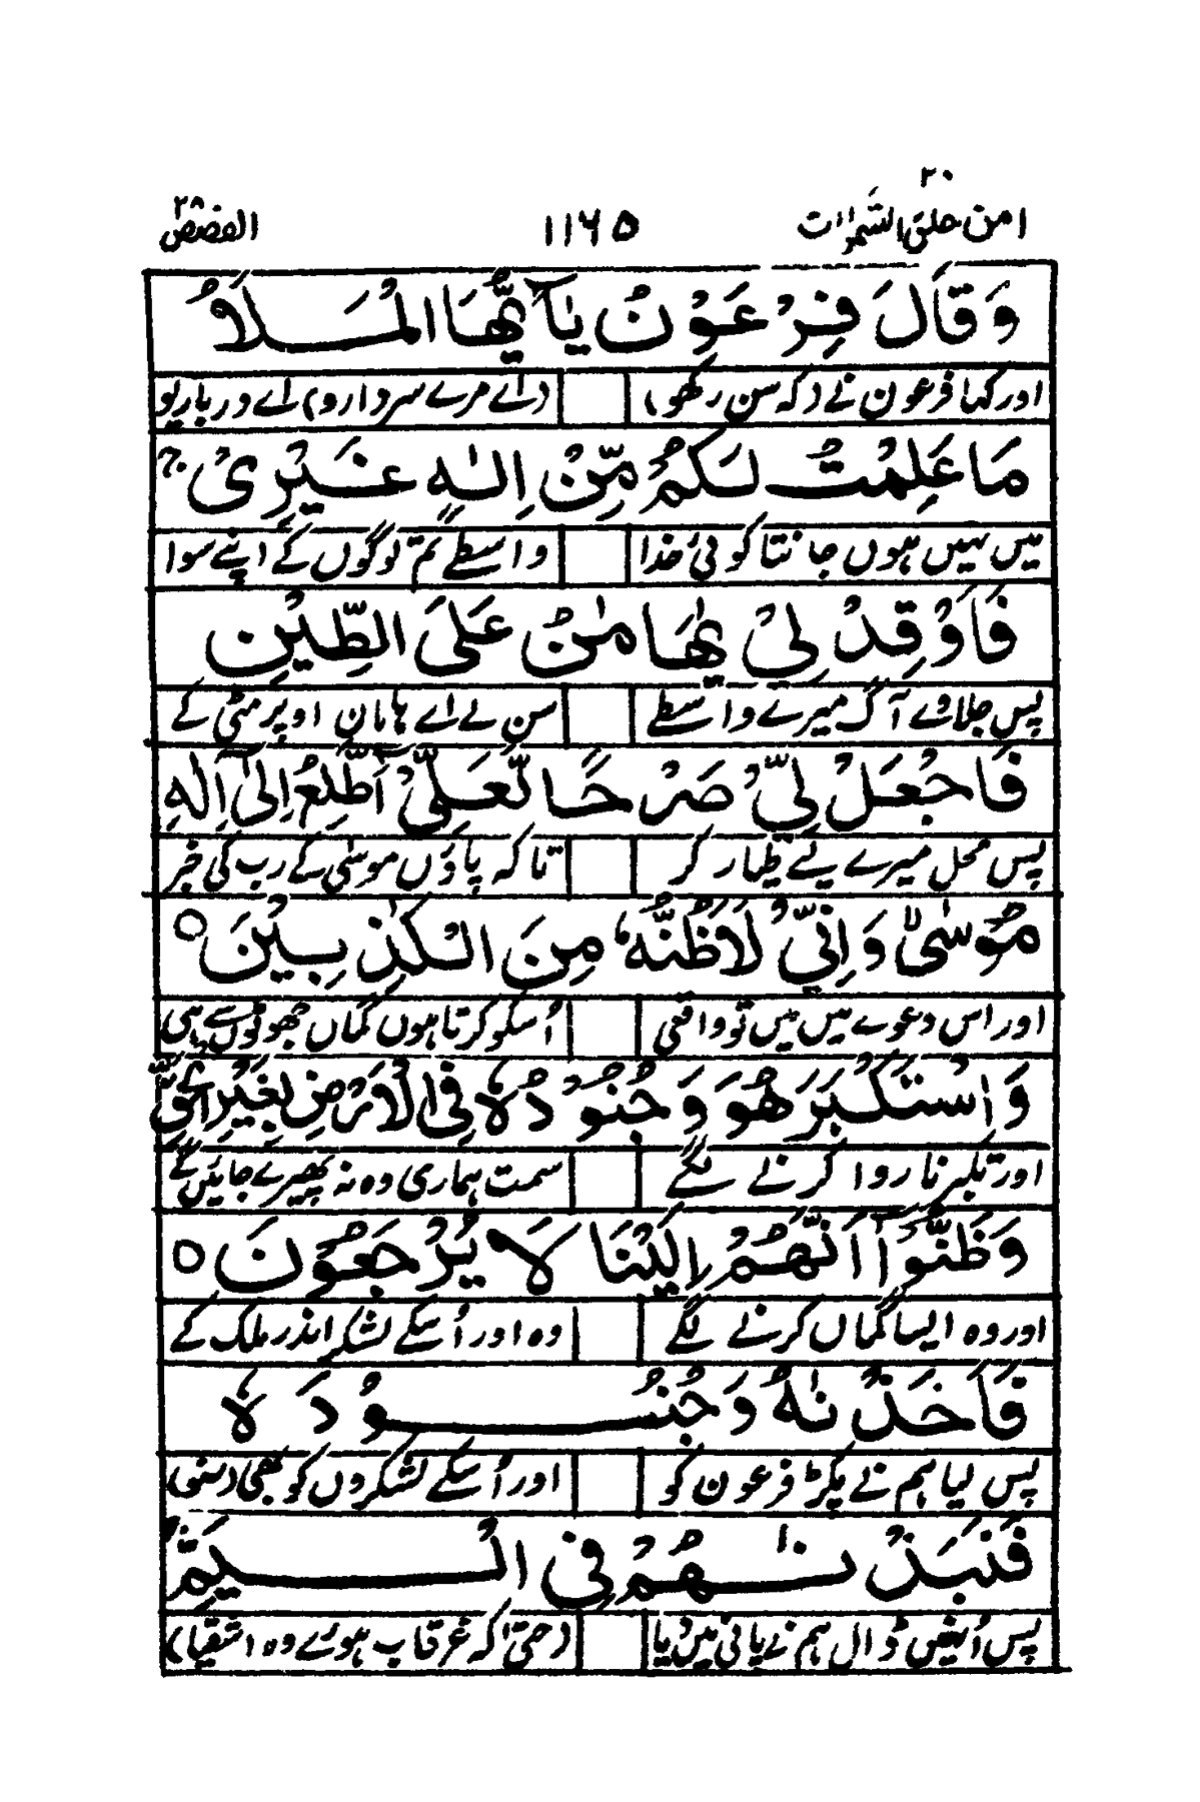 امن خلق السّمٰوٰت ۲۰ ۱۱۶۵ القصص ۲۸
وَقَالَ فِرْعَوْنُ يٰۤاَيُّهَا الْمَلَاُ
اور کہا فرعون نے (کہ سن رکھو) (اے مرے سردارو) اے درباریو
مَا عَلِمْتُ لَكُمْ مِّنْ اِلٰهٍ غَيْرِىْ ۚ
میں نہیں ہوں جانتا کوئی خدا واسطے تم لوگوں کے اپنے سوا
فَاَوْقِدْ لِىْ يٰهَامٰنُ عَلَى الطِّيْنِ
پس جلادے آگ میرے واسطے سن لے اے ہامان اوپر مٹی کے
فَاجْعَلْ لِّىْ صَرْحًا لَّعَلِّىْۤ اَطَّلِعُ اِلٰىۤ اِلٰهِ
پس محل میرے لیے طیار کر تاکہ پاؤں موسٰی کے رب کی خبر
مُوْسٰى وَاِنِّىْ لَاَظُنُّهٗ مِنَ الْكٰذِبِيْنَ ○
اور اس دعوے میں میں تو واقعی اُسکو کرتا ہوں گماں جھوٹوں سے ہی
وَاسْتَكْبَرَ هُوَ وَجُنُوْدُهٗ فِى الْاَرْضِ بِغَيْرِ الْحَقِّ
اور تکبر ناروا کرنے لگے سمت ہماری وہ نہ پھیرے جائیں گے
وَظَنُّوْۤا اَنَّهُمْ اِلَيْنَا لَا يُرْجَعُوْنَ ○
اور وہ ایسا گماں کرنے لگے وہ اور اُسکے لشکر اندر ملک کے
فَاَخَذْنٰهُ وَجُنُوْدَهٗ
پس لیا ہم نے پکڑ فرعون کو اور اُسکے لشکروں کو بھی
فَنَبَذْنٰهُمْ فِى الْيَمِّ
پس اُنھیں ڈال ہم نے پانی میں دیا (حتیٰ کہ غرقاب ہوئے وہ اشقیا)